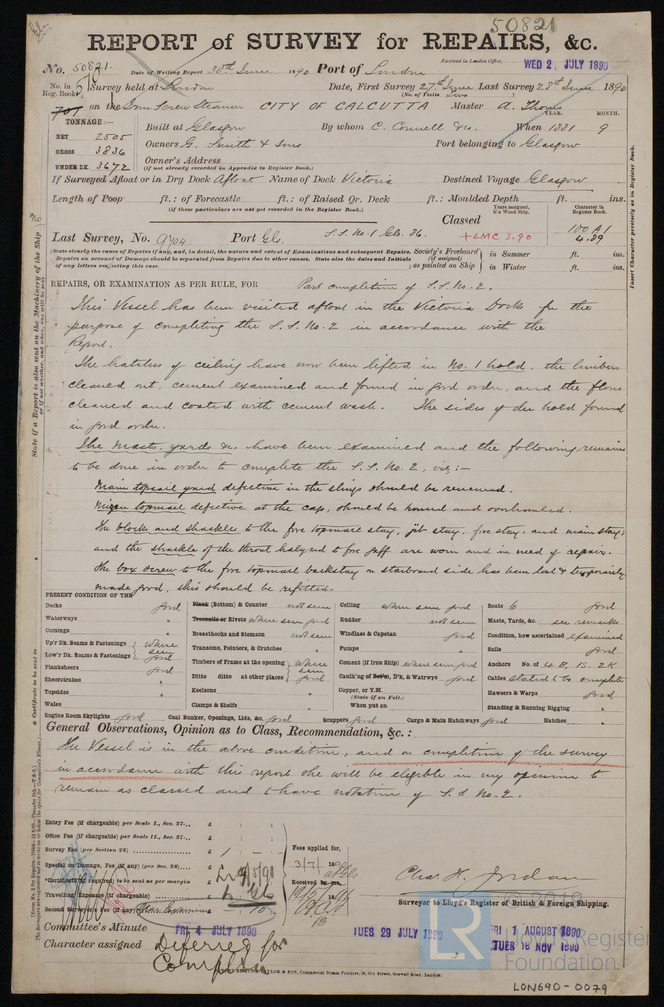 50821
REPORT of SURVEY for REPAIRS, &c.
Received in London Office, WED 2 JULY 1890
No. 50821. Date of Writing Report 30th June 1890 Port of London
No. in Reg. Book. Survey held at London Date, First Survey 27th June Last Survey 28th June 1890
(No. of Visits two)
707 on the Iron Screw Steamer CITY OF CALCUTTA Master A. Thoms
TONNAGE:— YEAR. MONTH.
NET 2505 Built at Glasgow By whom C. Connell & Co. When 1881 9
GROSS 3836 Owners G. Smith & Sons Port belonging to Glasgow
UNDER DK 3672 Owner's Address
(if not already recorded in Appendix to Register Book.)
If Surveyed Afloat or in Dry Dock Afloat Name of Dock Victoria Destined Voyage Glasgow
Length of Poop ft.: of Forecastle ft.: of Raised Qr. Deck ft.: Moulded Depth ft. ins.
(if these particulars are not yet recorded in the Register Book.)
Years assigned, if a Wood Ship. Character in Register Book.
Classed
S.S. No. 1 Glo. 86. +LMC 3.90 100 A1 4.89
Last Survey, No. 9704 Port Glo.
(State clearly the cause of Repairs (if any), and, in detail, the nature and extent of Examinations and subsequent Repairs.
Repairs on account of Damage should be separated from Repairs due to other causes. State also the dates and Initials
of any letters respecting this case.
Society's Freeboard (if assigned) as painted on Ship in Summer ft. ins.
in Winter ft. ins.
REPAIRS, OR EXAMINATION AS PER RULE, FOR Part completion of S.S. No. 2.
This Vessel has been visited afloat in the Victoria Dock for the
purpose of completing the S.S. No. 2 in accordance with the
Report.
The hatches of ceiling have now been lifted in No. 1 hold, the limbers
cleaned out, cement examined and found in good order, and the floors
cleaned and coated with cement wash. The sides of the hold found
in good order.
The masts, yards &c. have been examined and the following remains
to be done in order to complete the S.S. No. 2, viz:—
Main topsail yard defective in the slings should be renewed.
Mizen topmast defective at the cap, should be housed and overhauled.
The block and shackles to the fore topmast stay, jib stay, fore stay, and main stay;
and the shackle of the throat halyard to fore gaff are worn and in need of repair.
The box screw to the fore topmast backstay on starboard side has been lost & temporarily
made good, this should be refitted.
PRESENT CONDITION OF THE
Decks good
Waterways "
Comings "
Up'r Dk. Beams & Fastenings where seen
Low'r Dk. Beams & Fastenings good
Planksheers
Sheerstrakes "
Topsides "
Wales "
Engine Room Skylights good
Plank (Bottom) & Counter not seen
Treenails or Rivets where seen good
Breasthooks and Stemson not seen
Transoms, Pointers, & Crutches "
Timbers of Frame at the opening where seen
Ditto ditto at other places good
Keelsons "
Clamps & Shelfs "
Coal Bunker, Openings, Lids, &c. good
Ceiling where seen good
Rudder not seen
Windlass & Capstan good
Pumps "
Cement (if Iron Ship) where seen good
Caulk'ng of Bott'm, D'k, & Watrwys good
Copper, or Y.M.
(State if on Felt.)
When put on
Scuppers good Cargo & Main Hatchways good
Boats 6 good
Masts, Yards, &c. see remarks
Condition, how ascertained examined
Sails good
Anchors No. of 4 B, 1S. 2K
Cables stated to be complete
Hawsers & Warps good
Standing & Running Rigging "
Hatches "
General Observations, Opinion as to Class, Recommendation, &c.:
The Vessel is in the above condition, and on completion of the survey
in accordance with this report she will be eligible in my opinion to
remain as classed and to have notation of S.S No. 2.
Entry Fee (if chargeable) per Scale I., Sec. 27...
Office Fee (if chargeable) per Scale II., Sec. 27...
Survey Fee (per Section 28)
Special or Damage, Fee (if any) (per Sec. 28)
Certificate (if required) to be sent as per margin
Travelling Expenses (if chargeable)
Second Surveyor's Fee (if any)
Fees applied for,
3/7/1890
Received by me,
Chas. H. Jordan
Surveyor to Lloyd's Register of British & Foreign Shipping.
Committee's Minute FRI 4 JULY 1890 TUES 29 JULY 1890 FRI 1 AUGUST 1890
TUES 18 NOV 1890
Character assigned Deferred for
Completion
LR
Lloyd's Register
Foundation
LON690-0079